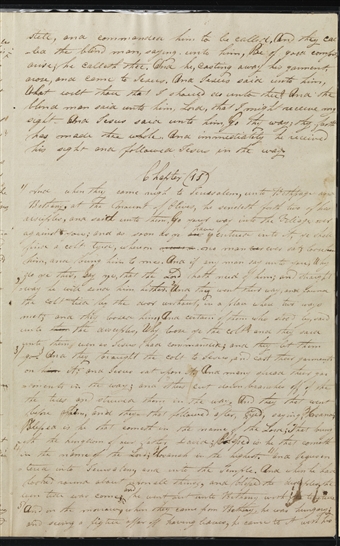 still, and commanded him to be called, And they cal-
led the blind man, saying unto him, Be of good comfort,
arise, he calleth thee. And he, casting away his garment,
arose, and came to Jesus. And Jesus said unto him,
What wilt thou that I should do unto thee? And the
blind man said unto him, Lord, that I might receive my
sight. And Jesus said unto him, Go thy way, thy faith
has made thee whole. And immediately he received
his sight and followed Jesus in the way.
Chapter
And when they came nigh to Jerusalem, unto Bethphage and
Bethany, at the Mount of Olives, he sendeth forth two of his
disciples, and said unto them, Go your way into the village over
against you; and as soon as ye entered into it ye shall
find a colt tied, whereon no man ever sat; loose
him, and bring him to me. And if any man say unto you, Why
do ye this, Say ye, that the Lord hath need of him; and straight
way he will send him hither. And they went their way, and found
the colt tied by the door without, in a place where two ways
met; and they loosed him. And certain of them who stood by said
unto the disciples, Why loose ye the colt? and they said
unto them, even as Jesus had commanded; and they let them
go. And they brought the colt to Jesus and cast their garments
on him; and Jesus sat upon it. And many spread their gar-
ments in the way; and others cut down branches off of
the trees and strewed them in the way. And they that went
before him, and they that followed after, cried, saying, Hosanna,
Blessed is he that cometh in the name of the Lord; that bring-
eth the kingdom of our father David; Blessed is he that cometh
in the name of the Lord; Hosanna in the highest. And Jesus en-
tered into Jerusalem, and into the temple. And when he had
looked round about upon all things, and blessed the disciples, the
even tide was come; and he went out unto Bethany with the
And on the morrow, when they came from Bethany, he was hungry;
and seeing a figtree afar off having leaves, he came to it